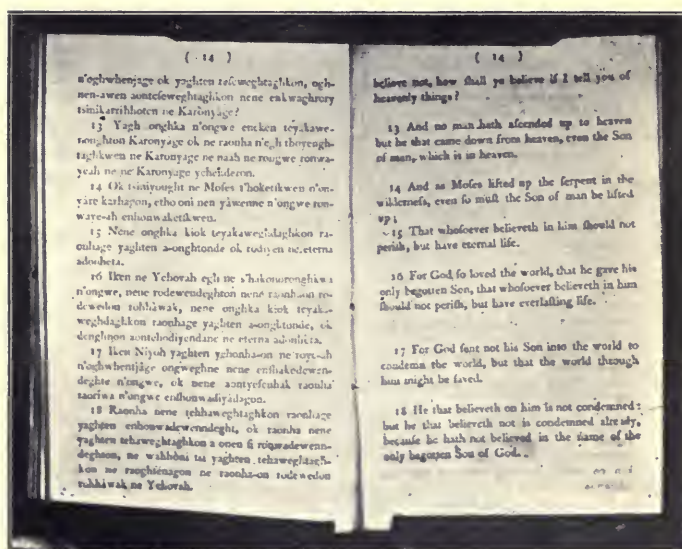 ( 14 )
n'oghwhenjage ok yaghten teseweghtaghkon, ogh-
nen-awen aonteseweghtaghkon nene enkwaghrory
tsinikarrihhoten ne Karonyage?
13 Yagh onghka n'ongwe eneken teyakawe-
nonghton Karonyage ok ne raonha n'egh thoyengh-
taghkwen ne Karonyage ne naah ne rongwe ronwa-
yeah ne ne Karonyage
14 Ok tsiniyought ne Moses s'hoketikwen n'on-
yare karhagon, etho oni nen yàwenne n'ongwe ron-
waye-ah enhonwaketikwen.
15 Nene onghka kiok teyakaweghdaghkon ra-
onhage yaghten a-onghtonde ok rodiyen ne eterna
adonheta.
16 Iken ne Yehovah egh ne s'hakonoronghkwa
n'ongwe, nene rodewendeghton nene raonha-on ro-
dewedon rohhàwak, nene onghka kiok teyaka-
weghdaghkon raonhage yaghten a-onghtonde, ok
denghnon aontehodiyendane ne eterna adonheta.
17 Iken Niyoh yaghten
n'oghwhentjàge ongweghne nene
deghte n'ongwe, ok nene raonha
taoriwa n'ongwe
18 Raonha nene tehhaweghtaghkon raonhage
yaghten enhonwadewenndeght, ok raonha nene
yaghten tehaweghtaghkon a onen
deghton, ne wahhòni tsi yaghten tehaweghtagh-
kon ne raoghsènagon ne raonha-on rodewedon
rohhàwak ne Yehovah.
( 14 )
believe not, how shall ye believe if I tell you of
heavenly things?
13 And no man hath ascended up to heaven
but he that came down from heaven, even the Son
of man, which is in heaven.
14 And as Moses lifted up the serpent in the
wilderness, even so must the Son of man be lifted
up;
15 That whosoever believeth in him should not
perish, but have eternal life.
16 For God so loved the world, that he gave his
only begotten Son, that whosoever believeth in him
should not perish, but have everlasting life.
17 For God sent not his Son into the world to
condemn the world, but that the world through
him might be saved.
18 He that believeth on him is not condemned:
but he that believeth not is condemned already,
because he hath not believed in the name of the
only begotten Son of God.